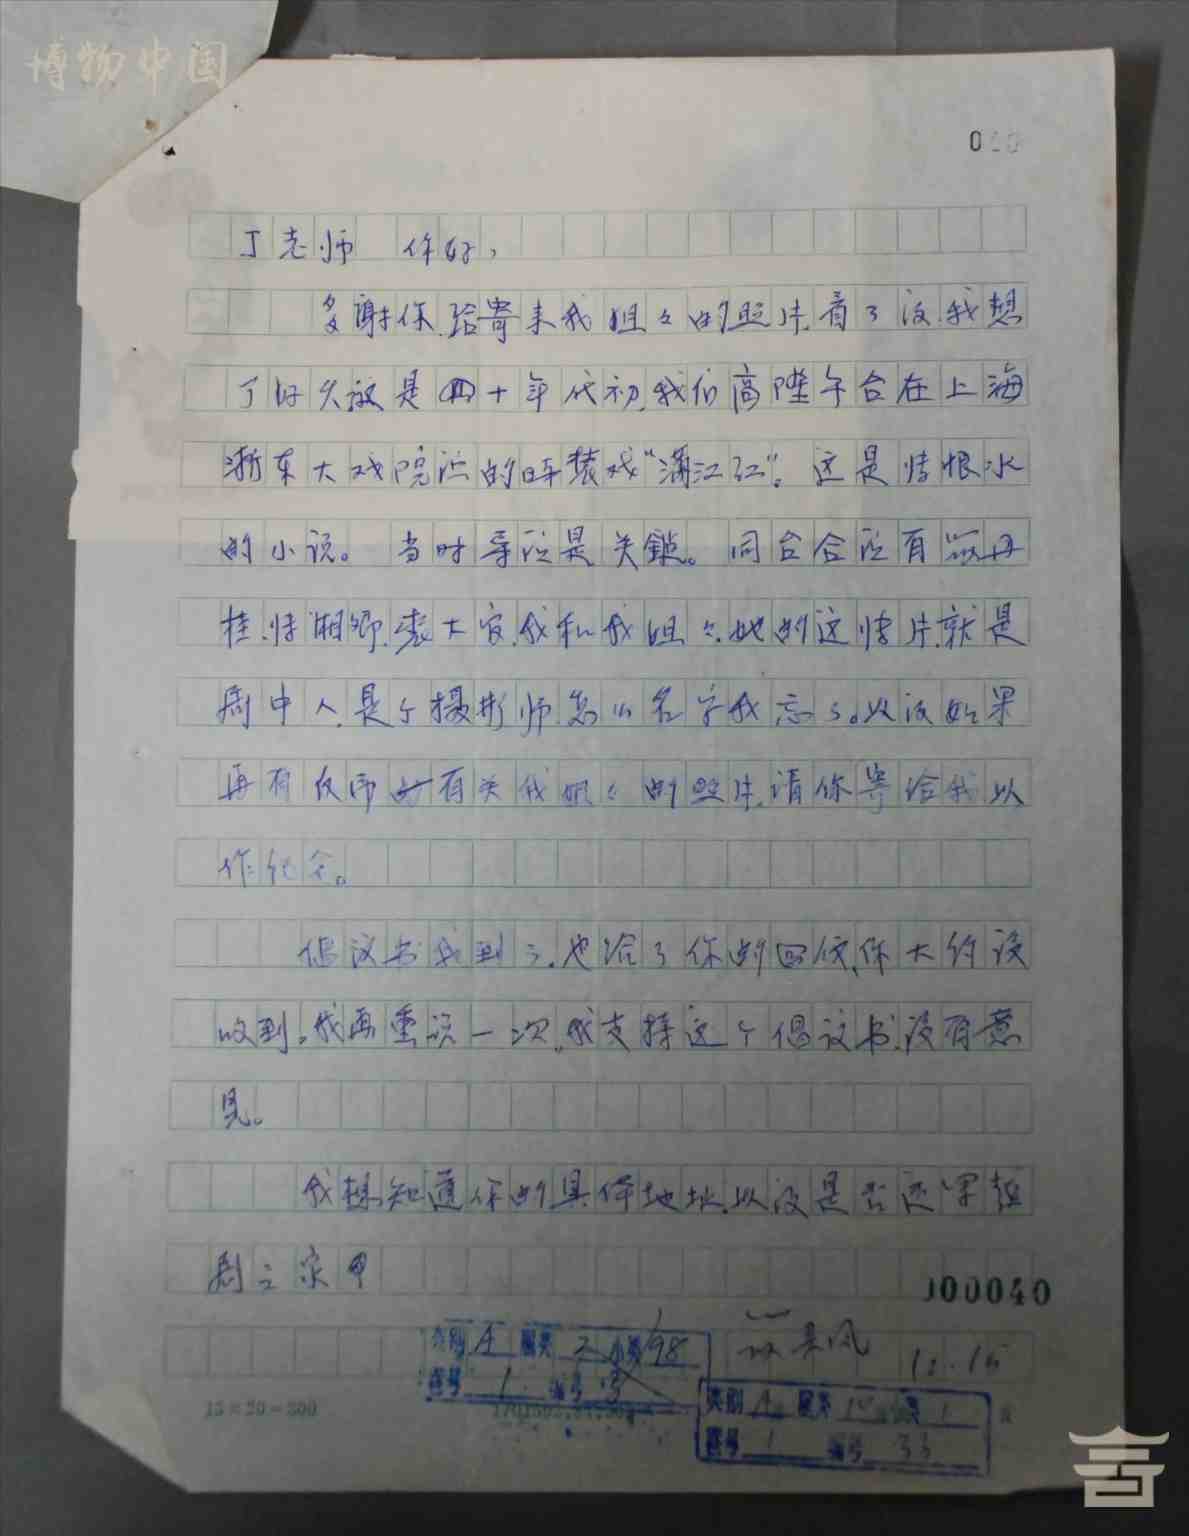 博物中国
0
丁老师 你好,
多谢你给寄来我姐々的照片.看了後.我想
了好久.该是四十年代初.我们高陞午台在上海
浙东大戏院演的时装戏“满江红”。这是张恨水
的小说。 当时导演是关鍵。同台合演有 丹
桂.张湘卿.裘大官.我和我姐々.她的这张片.就是
剧中人.是个摄影师.怎么名字我忘了。以後如果
再有 有关我姐々的照片.请你寄给我以
作纪念。
倡议书我到了.也给了你的回信.你大约没
收到.我再重说一次.我支持这个倡议书.没有意
见。
我想知道你的具体地址.以後是否还
剧之家
00040
12.15
类别 A 属类 2 小类 98
卷号 1 编号
类别 A 属类 类 1
卷号 1 编号 33
15×20=300